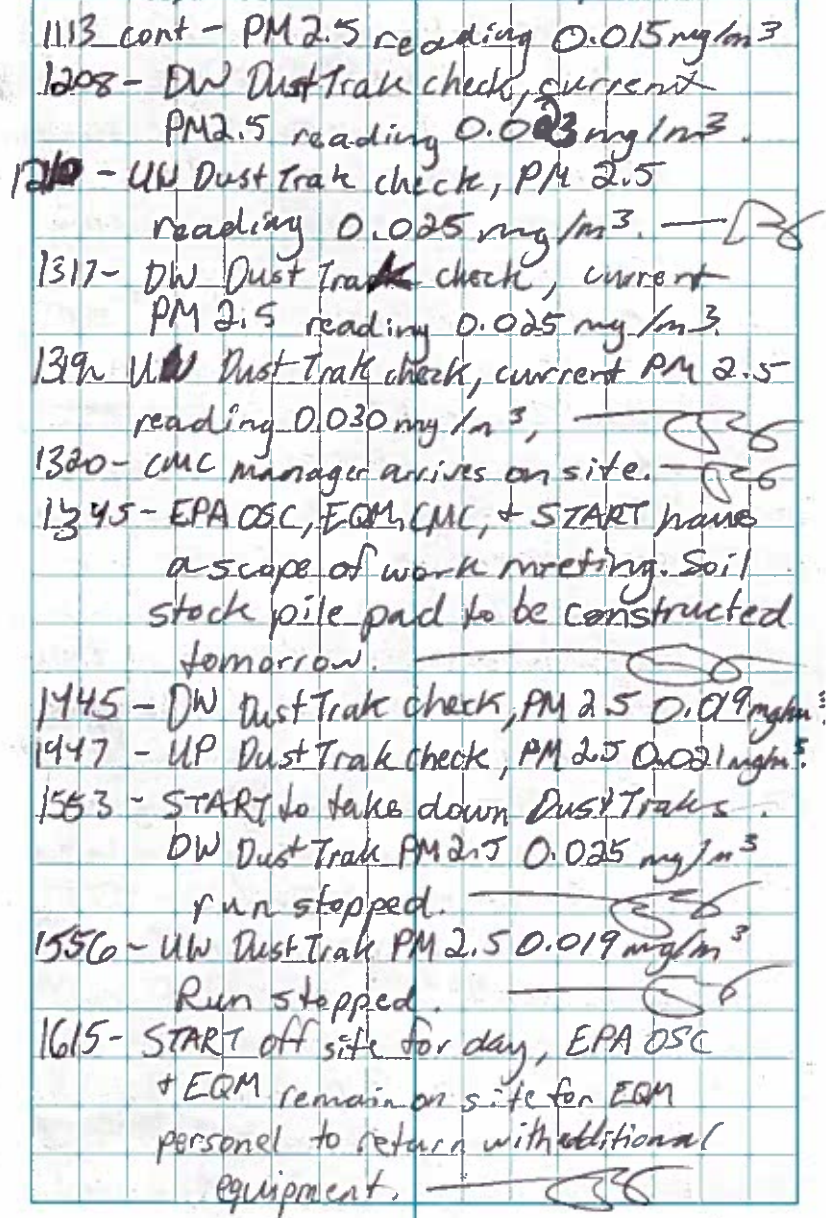 1113 cont - PM 2.5 reading 0.015 mg/m3
1208 - DW DustTrak check, current
PM2.5 reading 0.023 mg/m3.
1210 - UW Dust Trak check, PM 2.5
reading 0.025 mg/m3.
1317- DW Dust Trak check, current
PM 2.5 reading 0.025 mg/m3.
1319- UW Dust Trak check, current PM 2.5
reading 0.030 mg/m3,
1320- CMC manager arrives on site.
1345- EPA OSC, EQM, CMC, + START have
a scope of work meeting. Soil
stock pile pad to be constructed
tomorrow.
1445 - DW Dust Trak check, PM 2.5 0.019 mg/m3.
1447 - UP Dust Trak check, PM 2.5 0.021 mg/m3.
1553 - START to take down DustTraks.
DW Dust Trak PM 2.5 0.025 mg/m3
run stopped.
1556 - UW Dust Trak PM 2.5 0.019 mg/m3
Run stopped.
1615- START off site for day, EPA OSC
+ EQM remain on site for EQM
personel to return with additional
equipment.